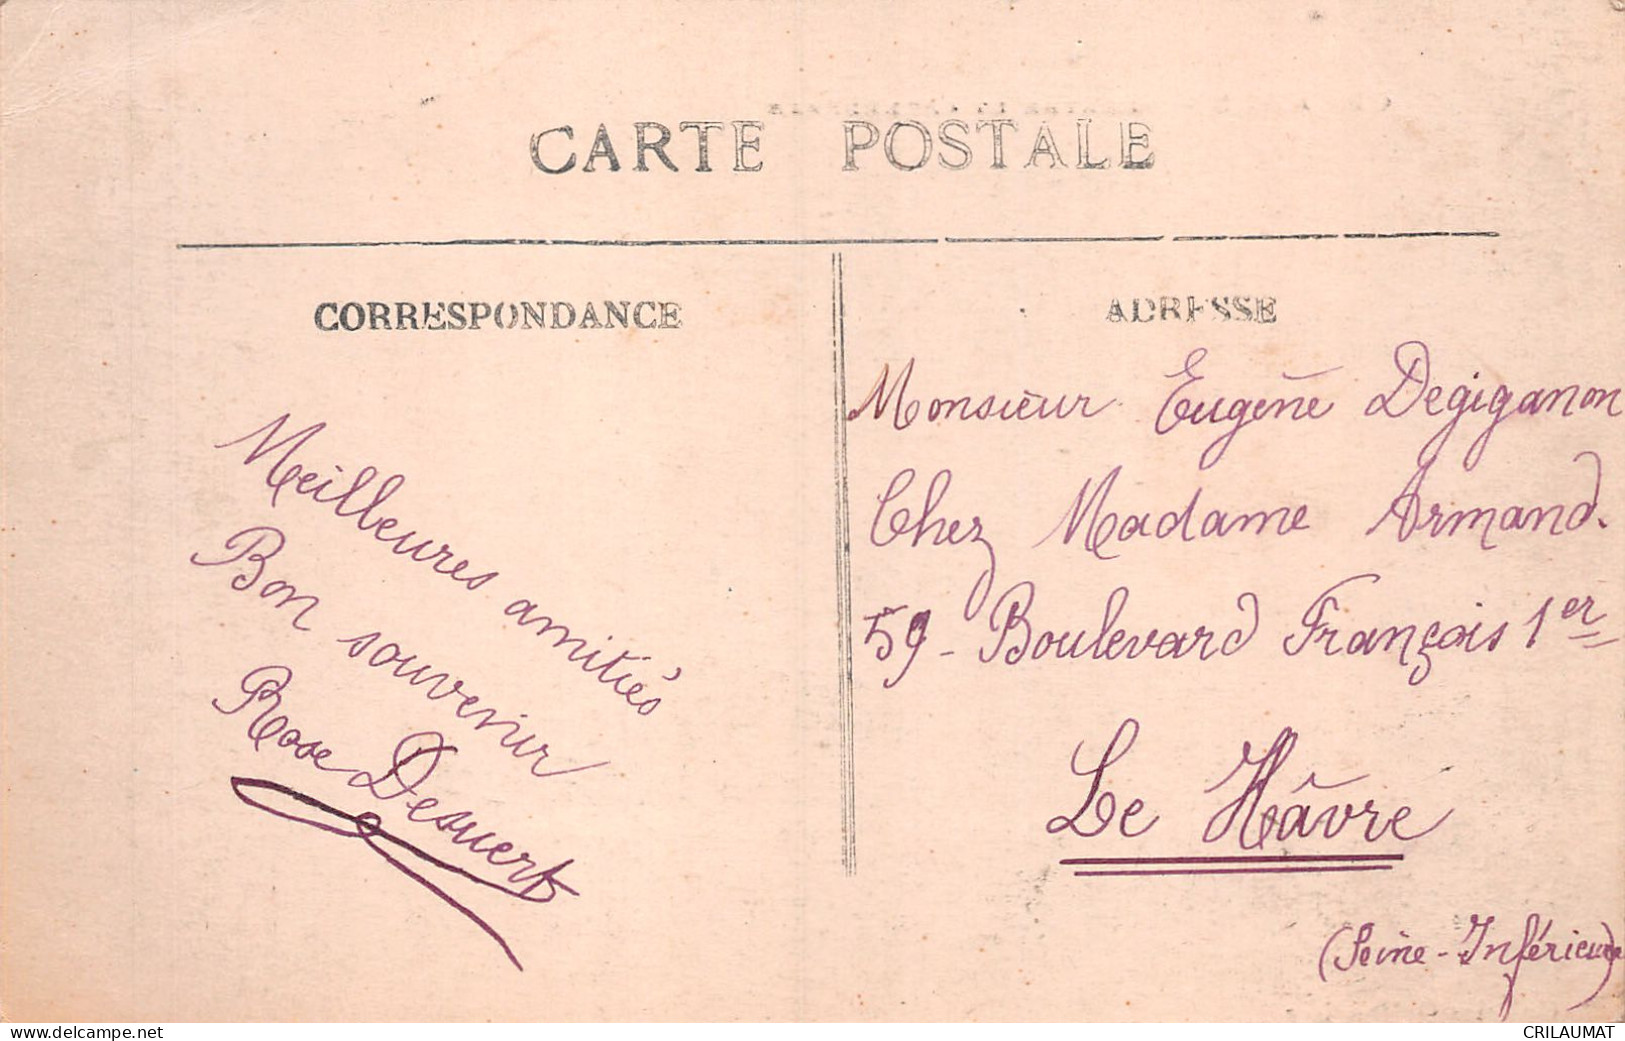 CARTE POSTALE
CORRESPONDANCE
Meilleures amitiés
Bon souvenir
Rose Desuert
ADRESSE
Monsieur Eugène Degiganon
Chez Madame Armand.
59 - Boulevard François 1er
Le Hâvre
(Seine-Inférieure)
www.delcampe.net
CRILAUMAT